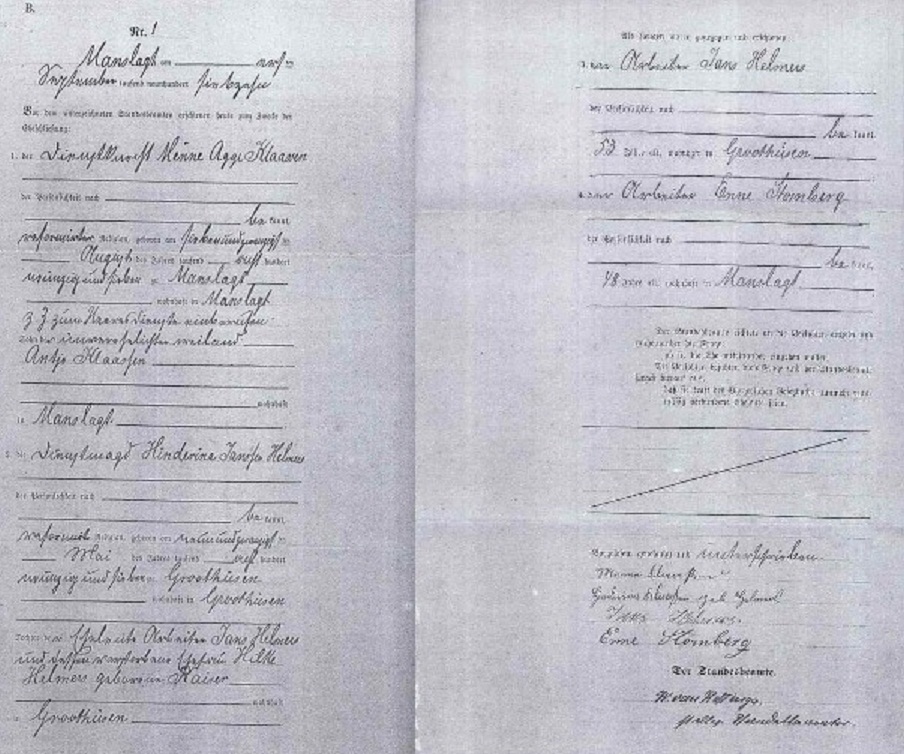 B.
Nr. 1
Manslagt am acht
September tausend neunhundert siebzehn
Vor dem unterzeichneten Standesbeamten erschienen heute zum Zwecke der
Eheschließung:
1. der Dienstknecht Menne Aggo Klaassen
der Persönlichkeit nach
be kannt,
reformierter Religion, geboren am siebenundzwanzigsten
August des Jahres tausend acht hundert
neunzig und sieben in Manslagt
wohnhaft in Manslagt
z. Z. zum Heeresdienste einberufen
Sohn der unverehelichten weiland
Antje Klaassen
wohnhaft
in Manslagt
2. die Dienstmagd Hinderina Janssen Helmers
der Persönlichkeit nach
be kannt,
Religion, geboren am neunundzwanzigsten
Mai des Jahres tausend acht hundert
neunzig und sieben Groothusen
wohnhaft in Groothusen
Tochter der Eheleute Arbeiter Jans Helmers
und dessen Ehefrau Hilke
Helmers geborene Kaiser
wohnhaft
in Groothusen
Als Zeugen waren zugezogen und erschienen:
3. der Arbeiter Jans Helmers
der Persönlichkeit nach
be kannt,
53 Jahre alt, wohnhaft in Groothusen
4. der Arbeiter Enne Stomberg
der Persönlichkeit nach
be kannt,
48 Jahre alt, wohnhaft in Manslagt
Der Standesbeamte richtete an die Verlobten einzeln und
nacheinander die Frage:
ob sie die Ehe miteinander eingehen wollen.
Die Verlobten bejahten diese Frage und der Standesbeamte
sprach hierauf aus,
daß sie kraft des Bürgerlichen Gesetzbuchs nunmehr rechtmäßig
verbundene Eheleute seien.
Vorgelesen, genehmigt und unterschrieben
Menne Klaassen
Klaassen geb. Helmers
Jans Helmers
Enne Stomberg
Der Standesbeamte.